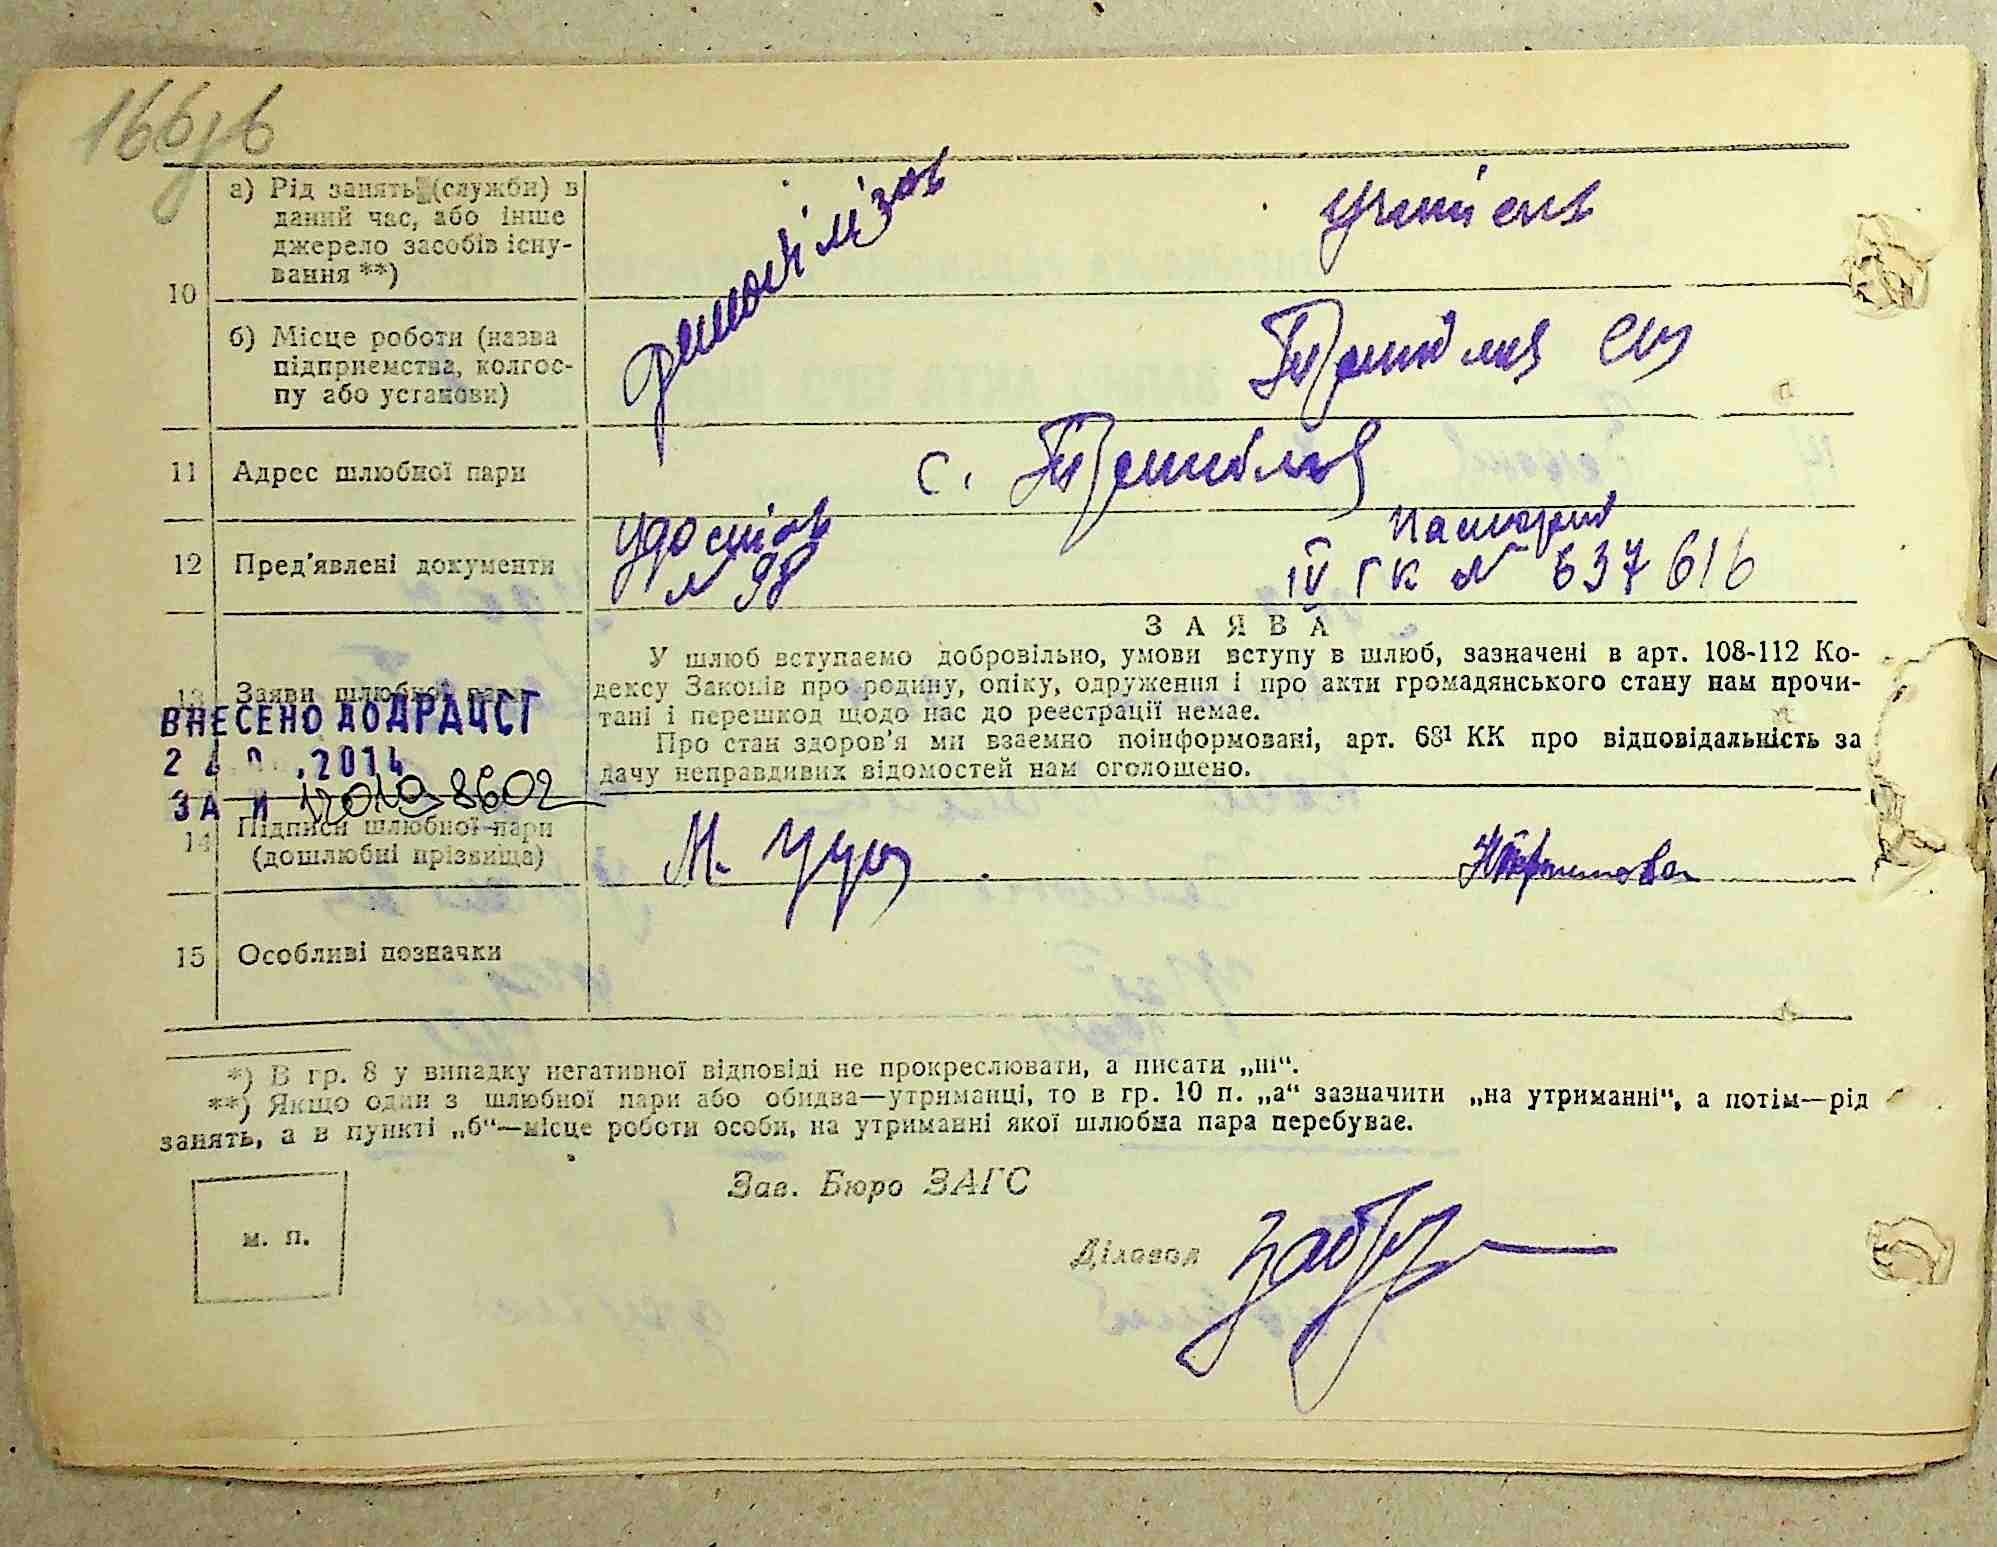 166зв
а) Рід занять (служби) в
даний час, або інше
джерело засобів існу-
вання **)
учит
10
б) Місце роботи (назва
підприємства, колгос-
пу або установи)
11 Адрес шлюбної пари
с.
12 Пред'явлені документи
№ 98
паспорт
IV ГК № 637616
ЗАЯВА
У шлюб вступаємо добровільно, умови вступу в шлюб, зазначені в арт. 108-112 Ко-
13 Заяви шлюбної пари
дексу Законів про родину, опіку, одруження і про акти громадянського стану нам прочи-
тані і перешкод щодо нас до реєстрації немає.
Про стан здоров'я ми взаємно поінформовані, арт. 68¹ КК про відповідальність за
дачу неправдивих відомостей нам оголошено.
ВНЕСЕНО ДО ДРАЦСГ
2014
ЗА №
14 Підписи шлюбної пари
(дошлюбні прізвища)
М.
15 Особливі позначки
*) В гр. 8 у випадку негативної відповіді не прокреслювати, а писати „ні“.
**) Якщо один з шлюбної пари або обидва—утриманці, то в гр. 10 п. „а“ зазначити „на утриманні“, а потім—рід
занять, а в пункті „б“—місце роботи особи, на утриманні якої шлюбна пара перебуває.
Зав. Бюро ЗАГС
м. п.
Діловод